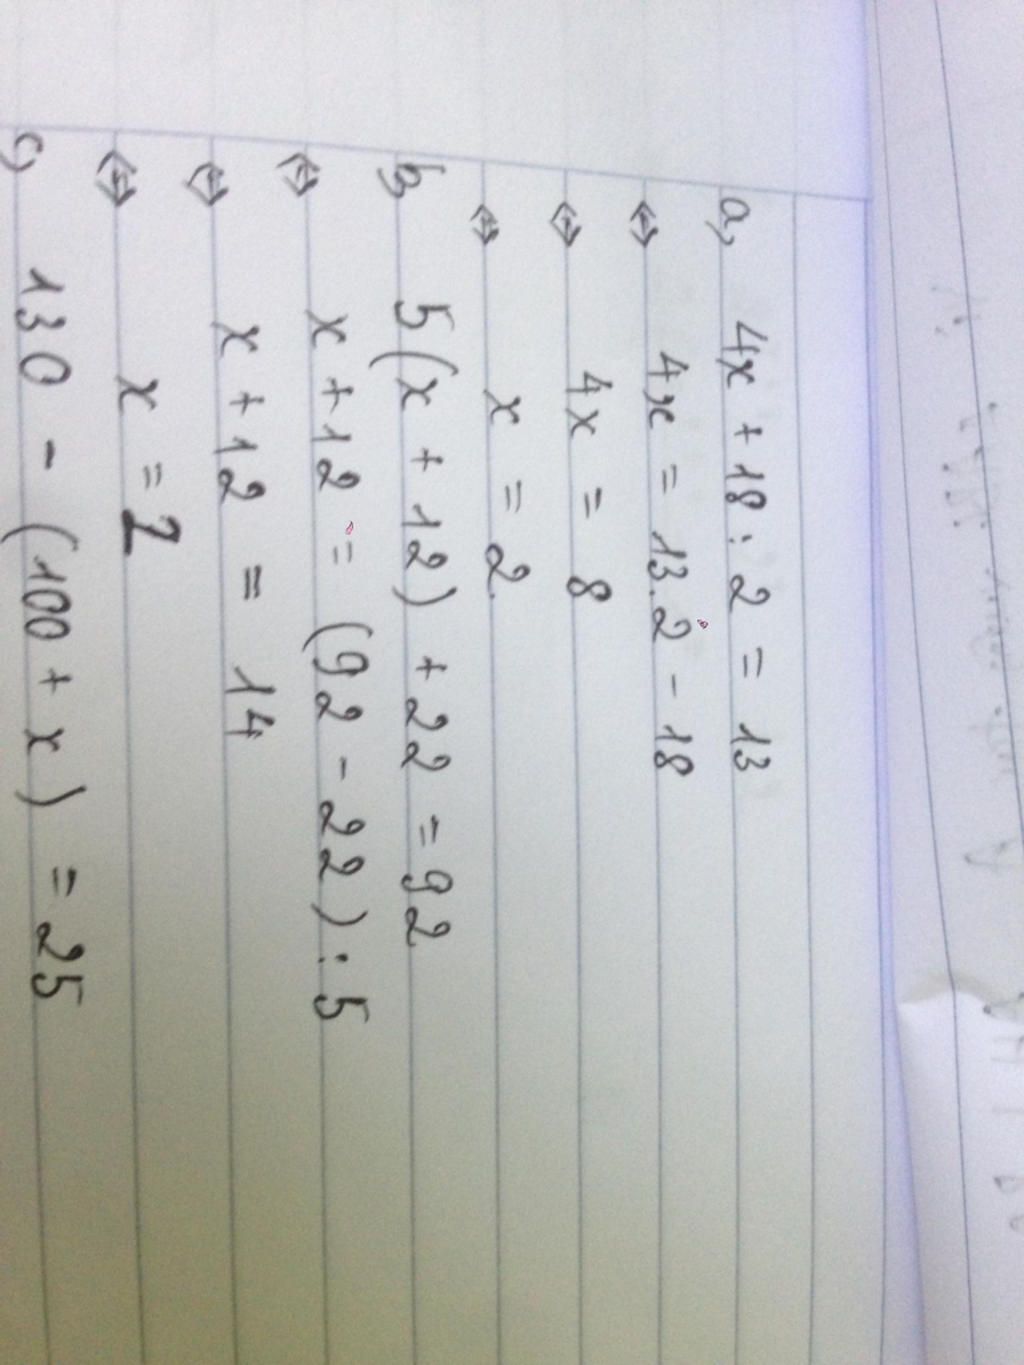 a, 4x + 18 : 2 = 13
⇔ 4x = 13.2 - 18
⇔ 4x = 8
⇔ x = 2.
b, 5(x + 12) + 22 = 92
⇔ x + 12 = (92 - 22) : 5
⇔ x + 12 = 14
⇔ x = 2
c, 130 - (100 + x) = 25